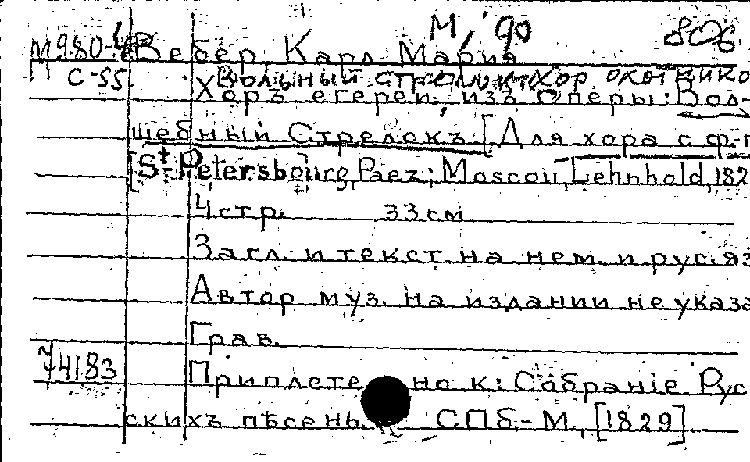 М, '90 806
М980-4 Вебер, Карл Мария
П С-55 Вольный стрелок. Хор охотнико
Хоръ егерей, изъ Оперы: Вол-
шебный Стрелокъ. [Для хора с ф-п
[St. Petersbourg, Paez; Moscou, Lehnhold, 182
4 стр. 33 см
Загл. и текст на нем. и рус. яз
Автор муз. на издании не указа
Грав.
74183 Приплетено к: Собранiе Рус
скихъ пѣсень. СПб.-М., [1829]